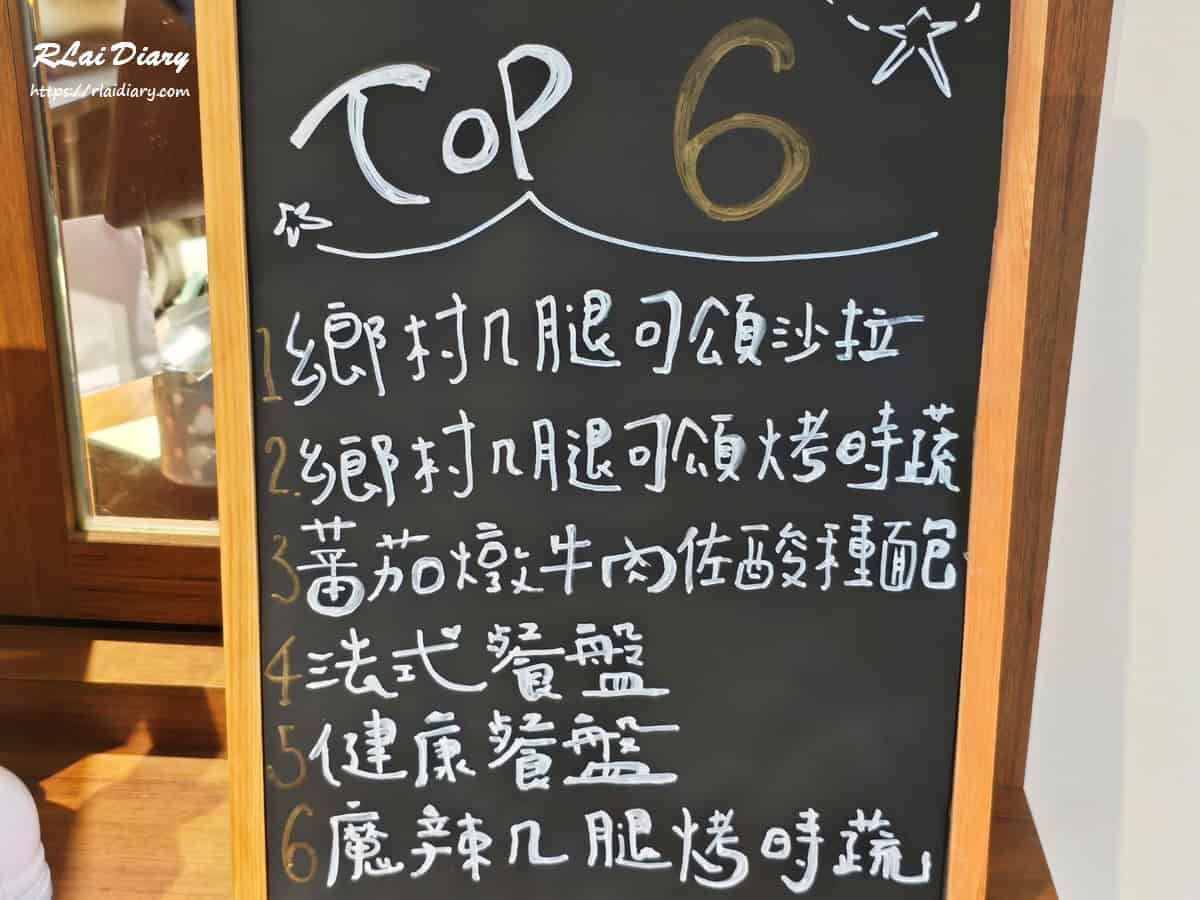 RLai Diary
https://rlaidiary.com
TOP 6
1 鄉村几腿可頌沙拉
2. 鄉村几腿可頌烤時蔬
3 蕃茄燉牛肉佐酸種麵包
4 法式餐盤
5 健康餐盤
6 魔辣几腿烤時蔬